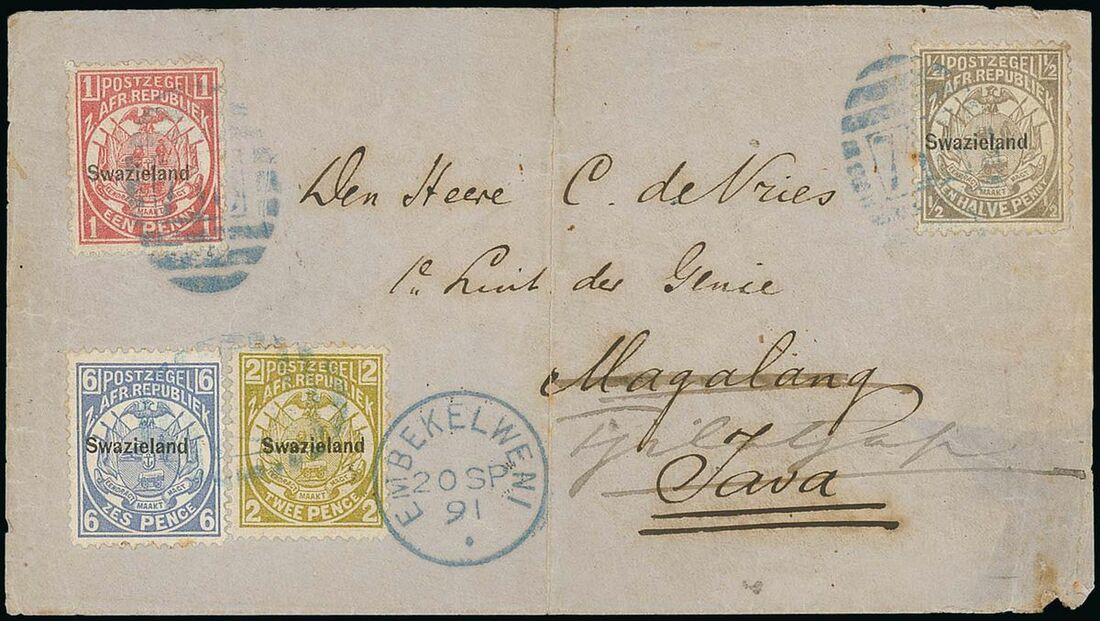 1 POSTZEGEL 1
Z. AFR. REPUBLIEK
Swazieland
EENDRAGT MAAKT MAGT
EEN PENNY
1 1
½ POSTZEGEL ½
Z. AFR. REPUBLIEK
Swazieland
EENDRAGT MAAKT MAGT
EEN HALVE PENNY
½ ½
Den Heere C. de Vries
1e Luit der Genie
Magalang
Java
6 POSTZEGEL 6
Z. AFR. REPUBLIEK
Swazieland
EENDRAGT MAAKT MAGT
6 ZES PENCE 6
2 POSTZEGEL 2
Z. AFR. REPUBLIEK
Swazieland
EENDRAGT MAAKT MAGT
2 TWEE PENCE 2
EMBEKELWENI
20 SP
91